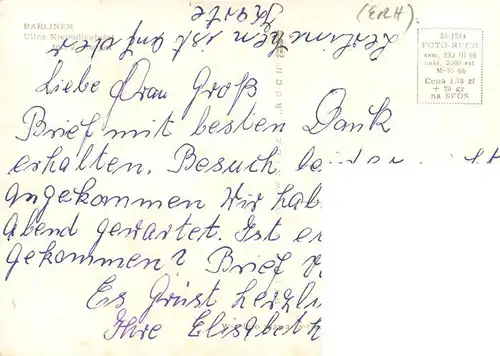 BARLINEK
Ulica Niepodległości
(ERH)
Berlinchen ist auf der
Karte
35-1584
FOTO-RUCH
zam. 232 III 66
nakl. 2000 szt
M-55 66
Cena 1,70 zł
+ 20 gr
na SFOS
Liebe Frau Groß
Brief mit besten Dank
erhalten. Besuch
angekommen Wir hab
Abend gewartet. Ist
gekommen? Brief
Es Grüst herzli
Ihre Elisabeth